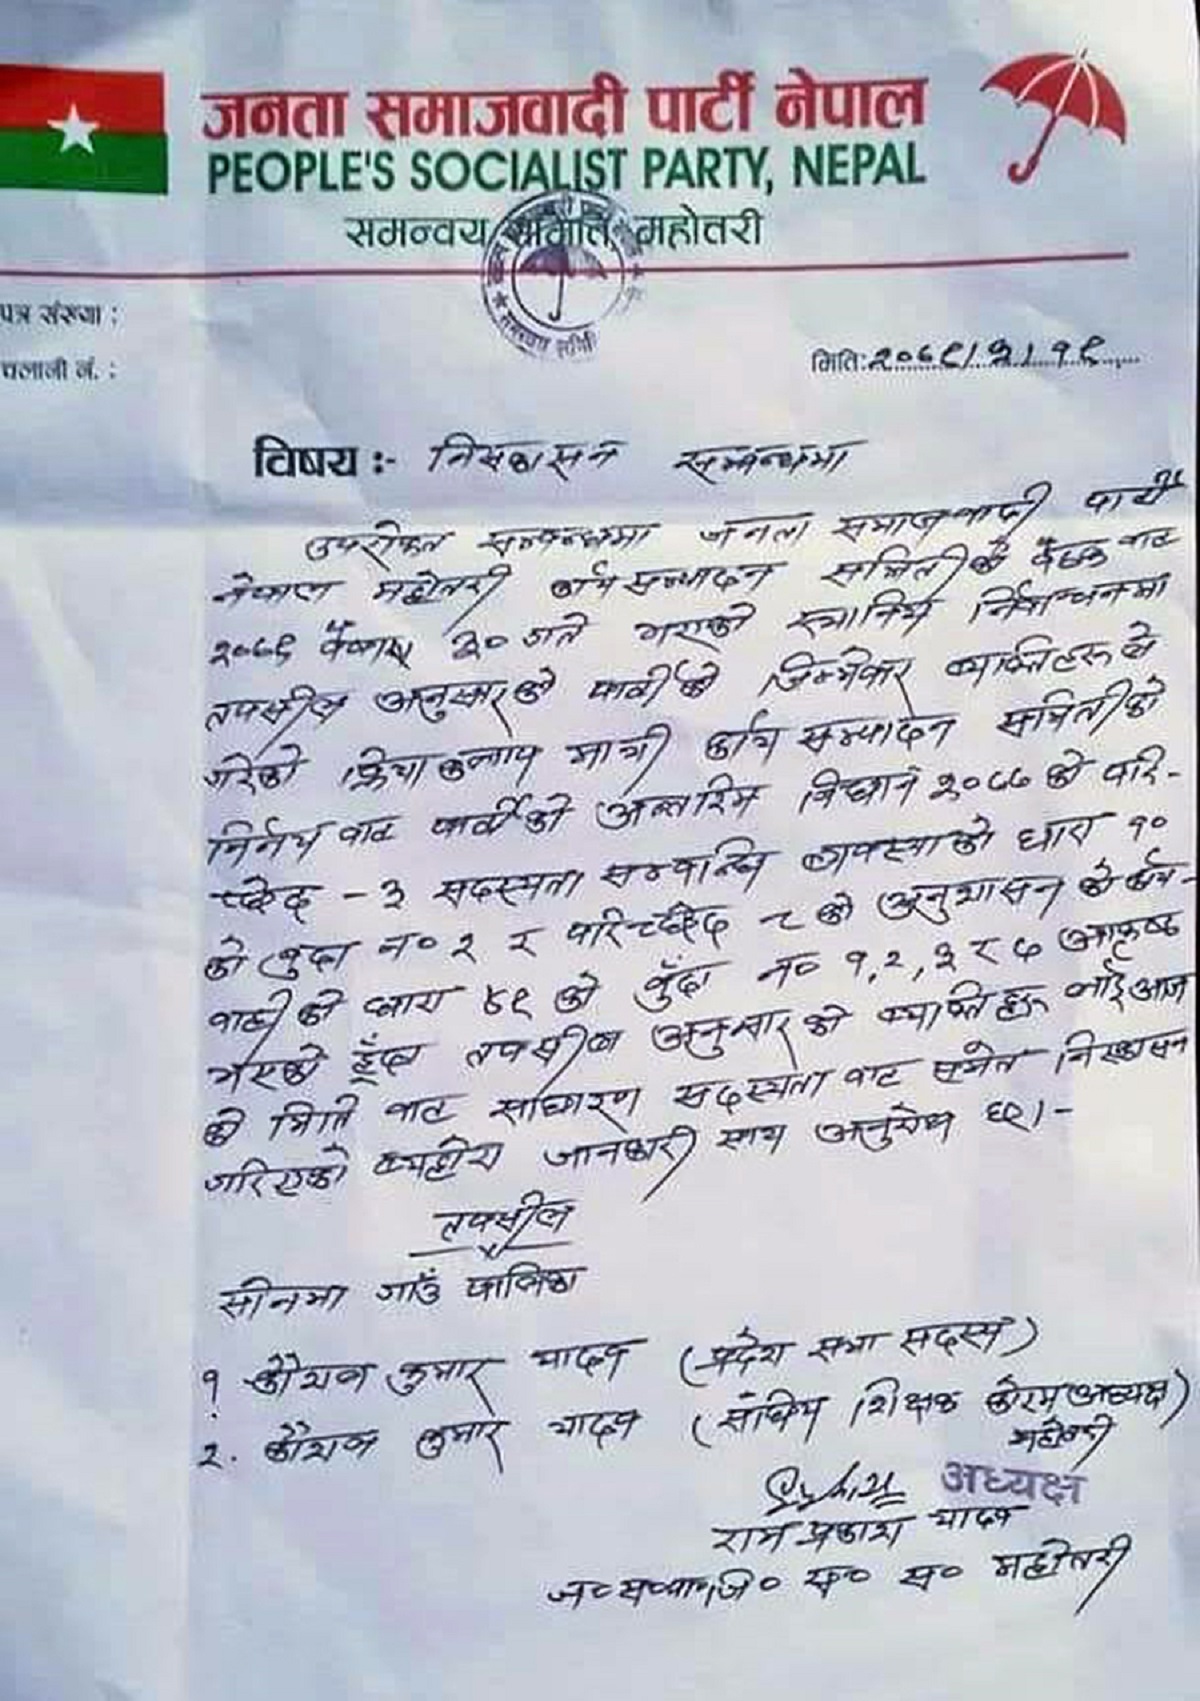 जनता समाजवादी पार्टी नेपाल
PEOPLE'S SOCIALIST PARTY, NEPAL
समन्वय समिति, महोतरी
समन्वय समिति
पत्र संख्या :
चलानी नं. :
मिति: २०७९/२/१९
विषय :- निस्कासन सम्बन्धमा
उपरोक्त सम्बन्धमा जनता समाजवादी पार्टी
नेपाल महोतरी कार्य सम्पादन समितीको बैठक बाट
२०७९ बैशाख ३० गते भएको स्थानिय निर्वाचनमा
तपसील अनुसारको पार्टीको जिम्मेवार ब्याक्तिहरुले
गरेको क्रिया कलाप माथी कार्य सम्पादन समितीको
निर्नय बाट पार्टीको अन्तरिम बिधान २०७७ को परि-
च्छेद - ३ सदस्यता सम्बन्धि व्यवस्थाको धारा १०
को बुँदा न० २ र परिच्छेद ८ को अनुशासन को कार्य-
वाही को धारा ४९ को बुँदा न० १, २, ३ र ७ आकृष्ठ
भएको हुँदा तपसील अनुसार को ब्याक्तिहरु लाई आज
को मिति बाट साधारण सदस्यता बाट समेत निस्कासन
गरिएको ब्यहोरा जानकारी साथ अनुरोध छ।-
तपसील
सोनमा गाउँ पालिका
१ कौशल कुमार यादव (प्रदेश सभा सदस्य)
२. कौशल कुमार यादव (संघिय शिक्षक फोरम अध्यक्ष)
महोतरी
अध्यक्ष
राम प्रकाश यादव
ज०स०पा० जि० स० स० महोतरी